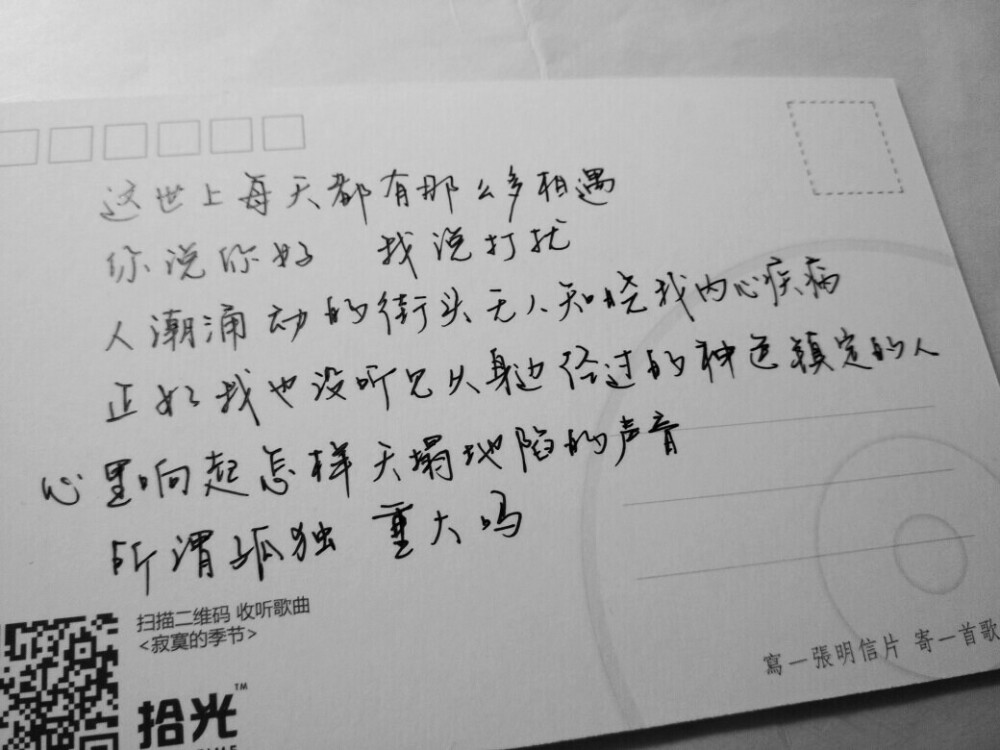 这世上每天都有那么多相遇
你说你好 我说打扰
人潮涌动的街头无人知晓我内心疾病
正好我也没听见从身边经过的神色镇定的人
心里响起怎样天塌地陷的声音
所谓孤独 重大吗
扫描二维码 收听歌曲
<寂寞的季节>
拾光™
寫一張明信片 寄一首歌